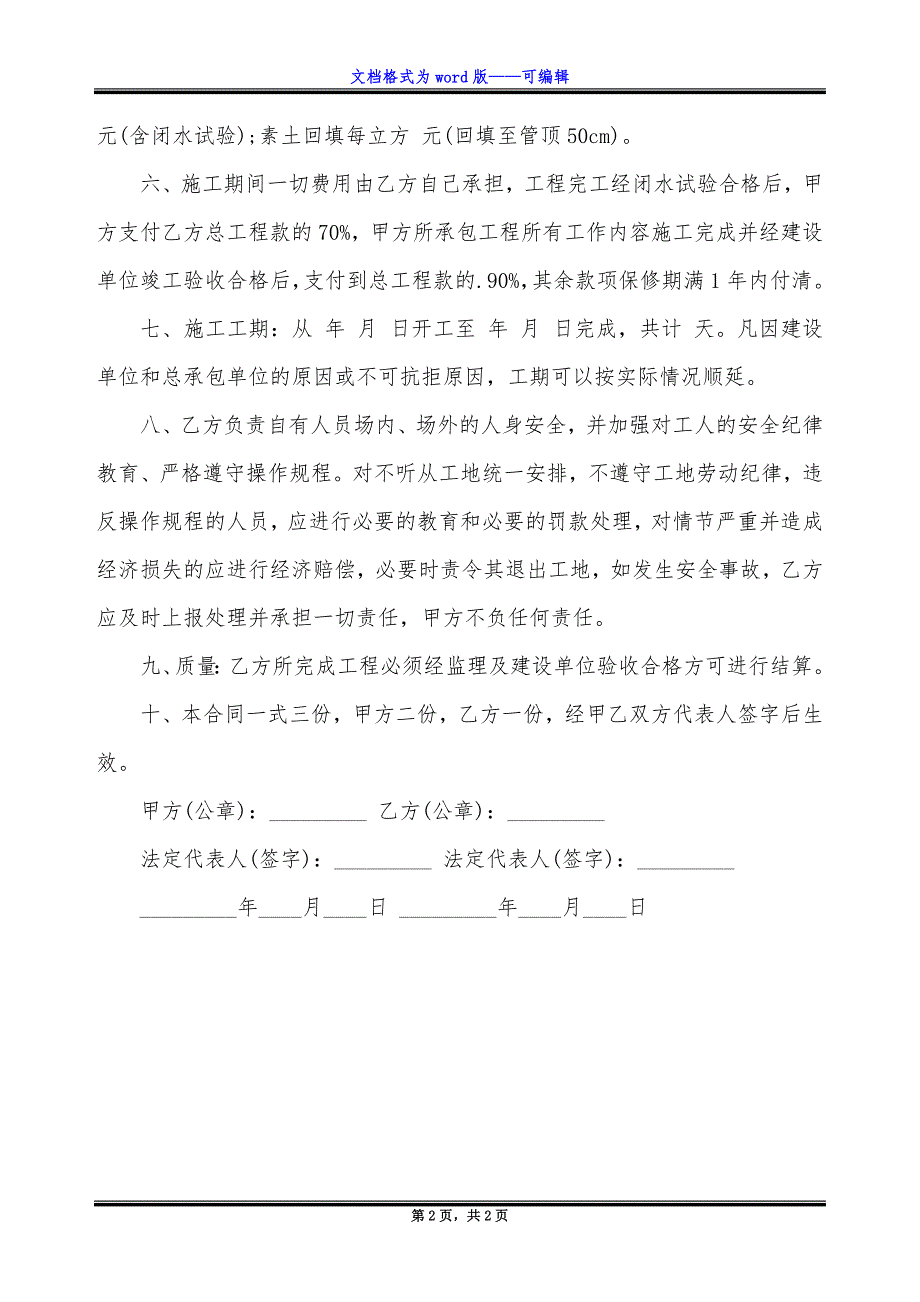 文档格式为 word 版——可编辑
元(含闭水试验);素土回填每立方 元(回填至管顶50cm)。
六、施工期间一切费用由乙方自己承担，工程完工经闭水试验合格后，甲
方支付乙方总工程款的70%，甲方所承包工程所有工作内容施工完成并经建设
单位竣工验收合格后，支付到总工程款的.90%，其余款项保修期满1年内付清。
七、施工工期：从 年 月 日开工至 年 月 日完成，共计 天。凡因建设
单位和总承包单位的原因或不可抗拒原因，工期可以按实际情况顺延。
八、乙方负责自有人员场内、场外的人身安全，并加强对工人的安全纪律
教育、严格遵守操作规程。对不听从工地统一安排，不遵守工地劳动纪律，违
反操作规程的人员，应进行必要的教育和必要的罚款处理，对情节严重并造成
经济损失的应进行经济赔偿，必要时责令其退出工地，如发生安全事故，乙方
应及时上报处理并承担一切责任，甲方不负任何责任。
九、质量：乙方所完成工程必须经监理及建设单位验收合格方可进行结算。
十、本合同一式三份，甲方二份，乙方一份，经甲乙双方代表人签字后生
效。
甲方(公章)：_________ 乙方(公章)：_________
法定代表人(签字)：_________ 法定代表人(签字)：_________
_________年____月____日 _________年____月____日
第 2 页，共 2 页